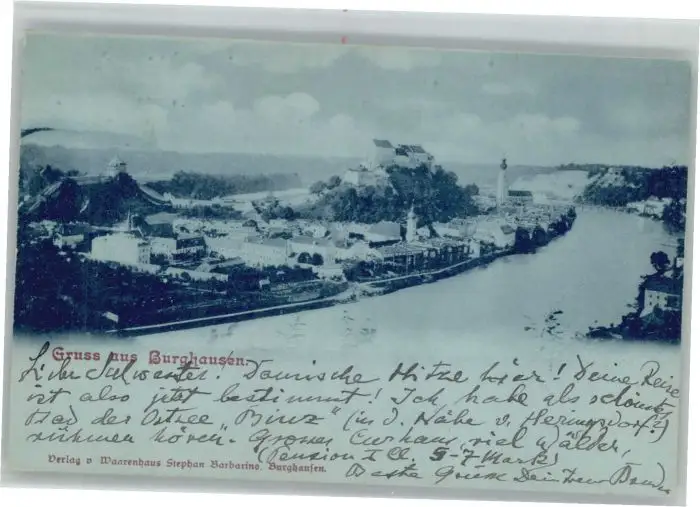 Gruss aus Burghausen.
Liebe Schwester! Tanrische Hitze hier! Deine Reise
ist also jetzt bestimmt! Ich habe als schönstes
Bad der Ostsee „Binz" (in d. Nähe v. Heringsdorf?)
rühmen hören. Grosses Curhaus, viel Wälder,
(Pension I Cl. 5-7 Mark)
Beste Grüsse Dein treuer Bruder
Verlag v. Waarenhaus Stephan Barbarino, Burghausen.